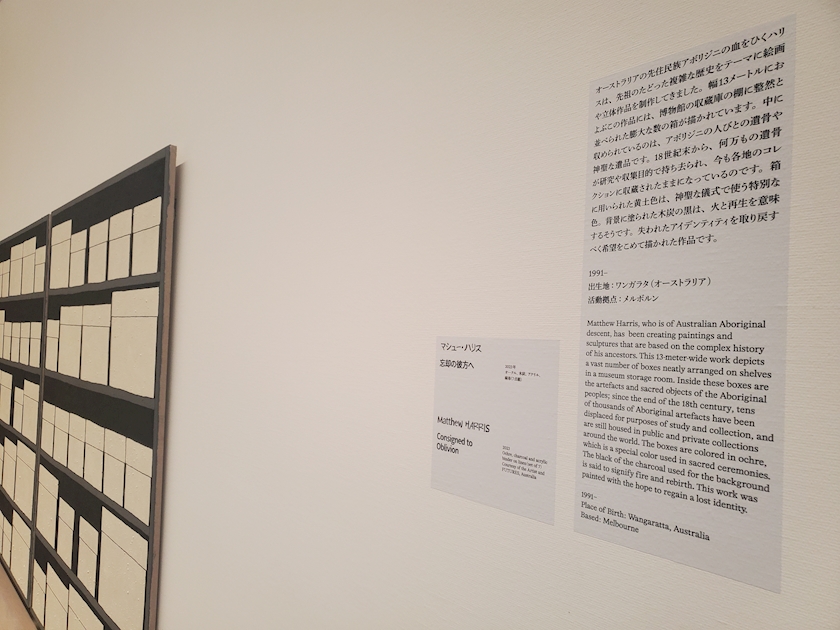 マシュー・ハリス
忘却の彼方へ
Matthew HARRIS
Consigned to
Oblivion
オーストラリアの先住民族アボリジニの血をひくハリ
スは、先祖のたどった複雑な歴史をテーマに絵画
や立体作品を制作してきました。幅13メートルにお
よぶこの作品には、博物館の収蔵庫の棚に整然と
並べられた膨大な数の箱が描かれています。中に
収められているのは、アボリジニの人びとの遺骨や
神聖な遺品です。18世紀末から、何万もの遺骨
が研究や収集目的で持ち去られ、今も各地のコレ
クションに収蔵されたままになっているのです。箱
に用いられた黄土色は、神聖な儀式で使う特別な
色。背景に塗られた木炭の黒は、火と再生を意味
するそうです。失われたアイデンティティを取り戻す
べく希望をこめて描かれた作品です。
1991–
出生地：ワンガラタ（オーストラリア）
活動拠点：メルボルン
Matthew Harris, who is of Australian Aboriginal
descent, has been creating paintings and
sculptures that are based on the complex history
of his ancestors. This 13-meter-wide work depicts
a vast number of boxes neatly arranged on shelves
in a museum storage room. Inside these boxes are
the artefacts and sacred objects of the Aboriginal
peoples; since the end of the 18th century, tens
of thousands of Aboriginal artefacts have been
displaced for purposes of study and collection, and
are still housed in public and private collections
around the world. The boxes are colored in ochre,
which is a special color used in sacred ceremonies.
The black of the charcoal used for the background
is said to signify fire and rebirth. This work was
painted with the hope to regain a lost identity.
1991–
Place of Birth: Wangaratta, Australia
Based: Melbourne